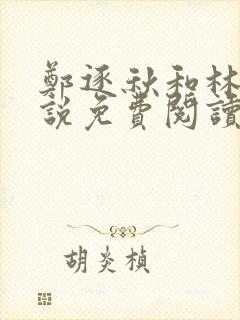 鄭逐秋和林
說免費閱讀
胡炎楨